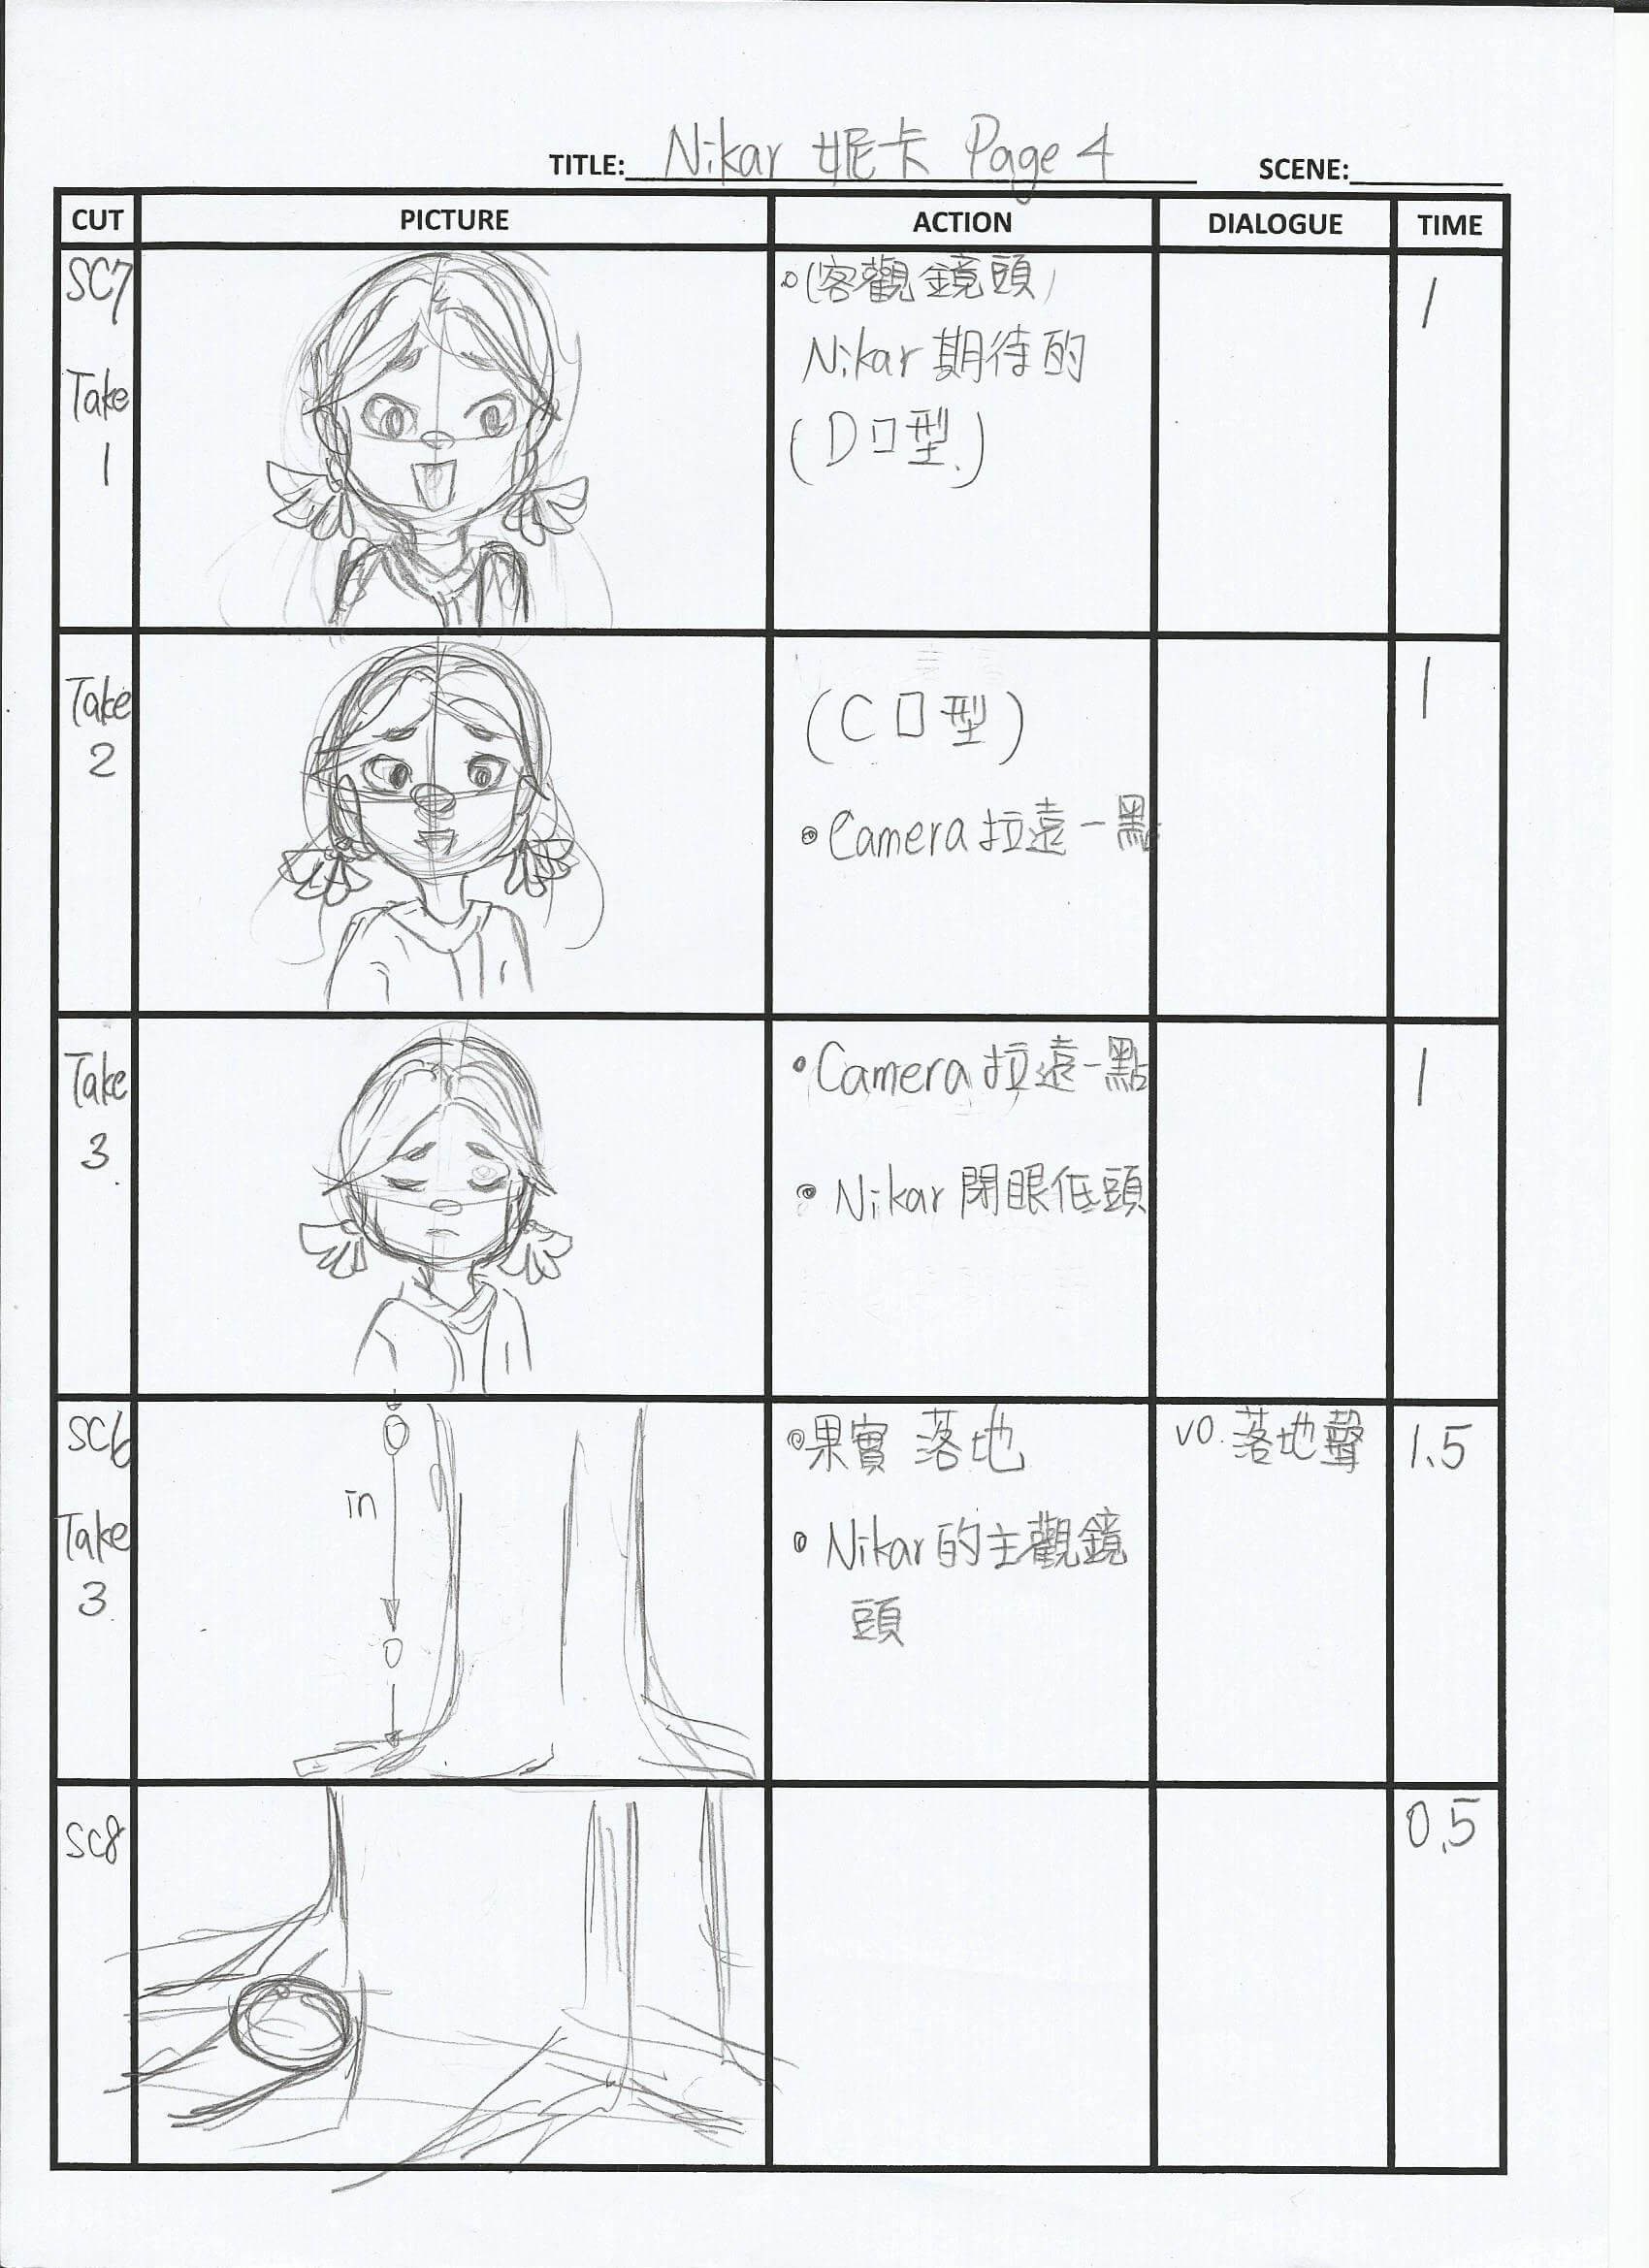 TITLE: Nikar 妮卡 Page 4 SCENE:
CUT PICTURE ACTION DIALOGUE TIME
SC7
Take
1
(客觀鏡頭)
Nikar 期待的
(D口型)
1
Take
2
(C口型)
Camera 拉遠一點
1
Take
3
Camera 拉遠一點
Nikar 閉眼低頭
1
SC6
Take
3
in
果實 落地
Nikar 的主觀鏡
頭
VO. 落地聲
1.5
SC8
0.5